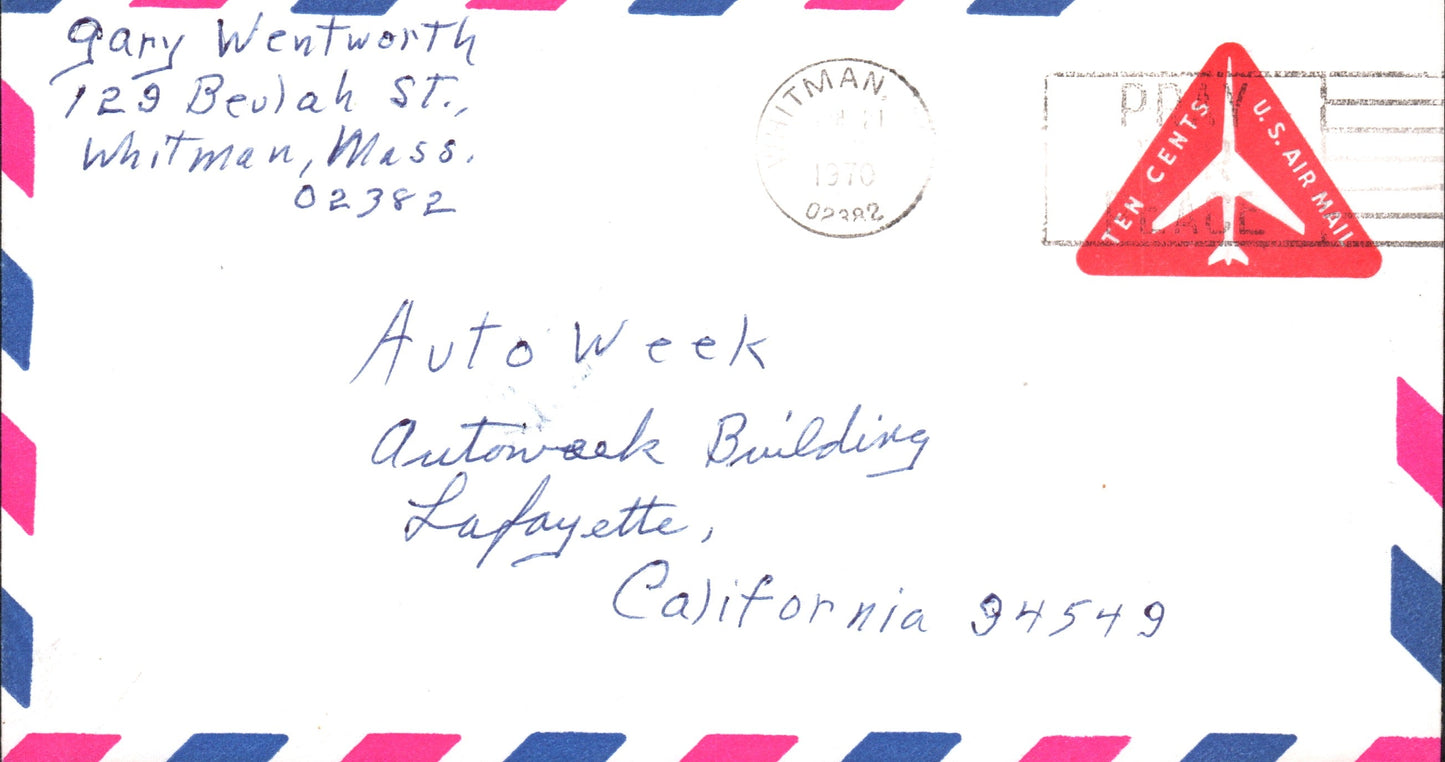 Gary Wentworth
129 Beulah St.,
Whitman, Mass.
02382
WHITMAN,
1970
02382
PRAY
PEACE
TEN CENTS
U.S. AIR MAIL
AutoWeek
Autoweek Building
Lafayette,
California 94549